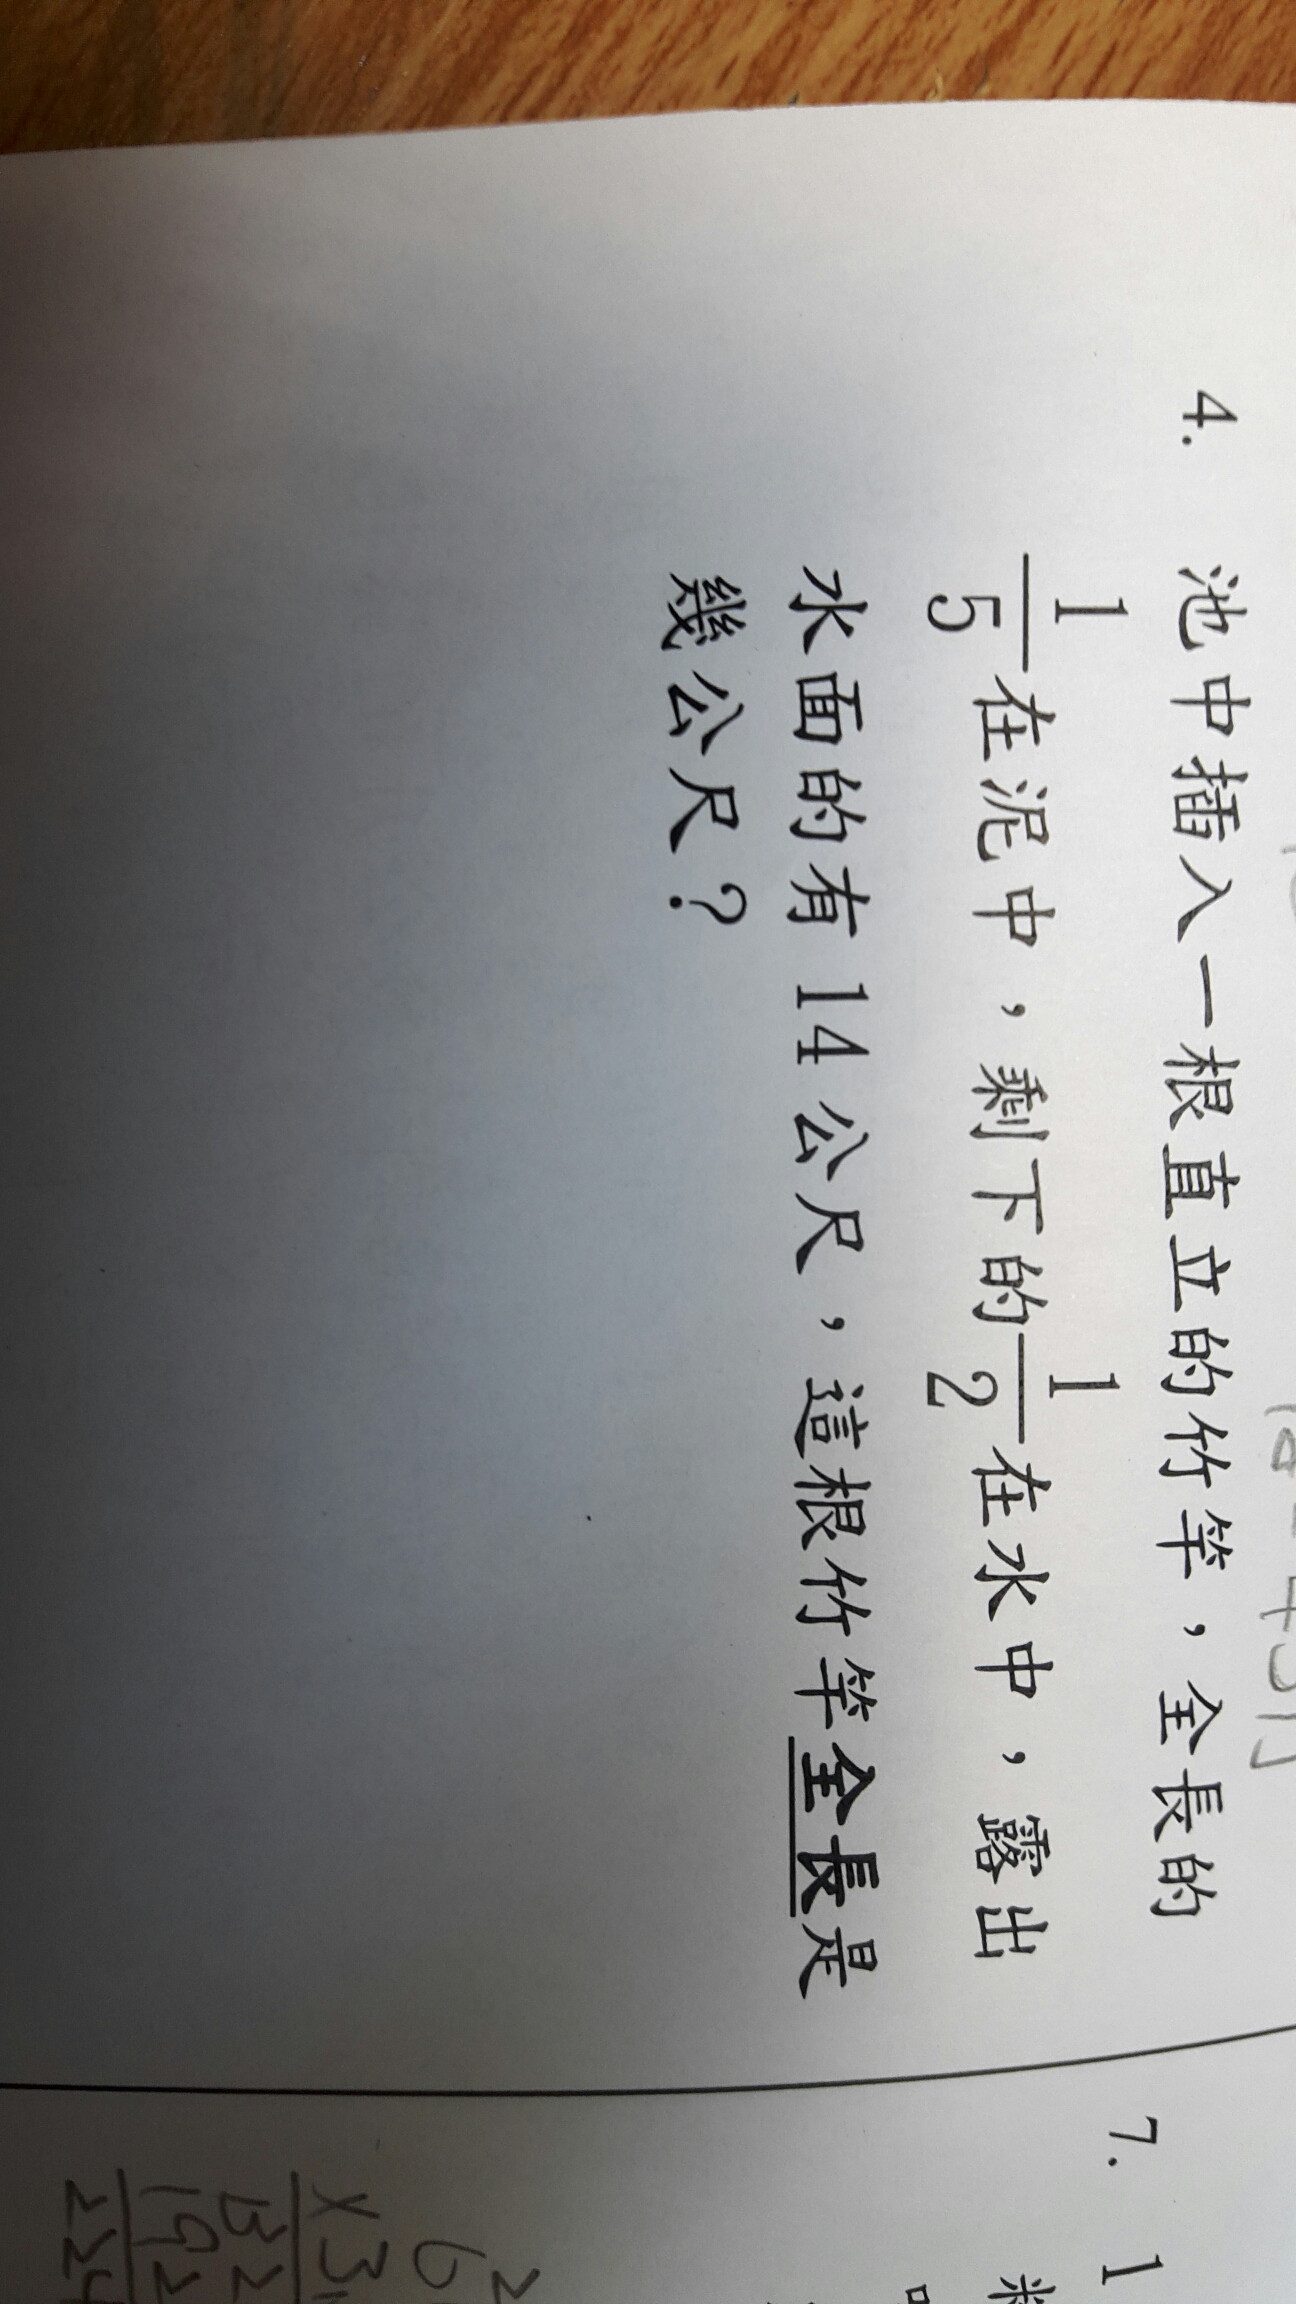 4. 池中插入一根直立的竹竿，全長的
1/5在泥中，剩下的1/2在水中，露出
水面的有14公尺，這根竹竿全長是
幾公尺？
7. 1